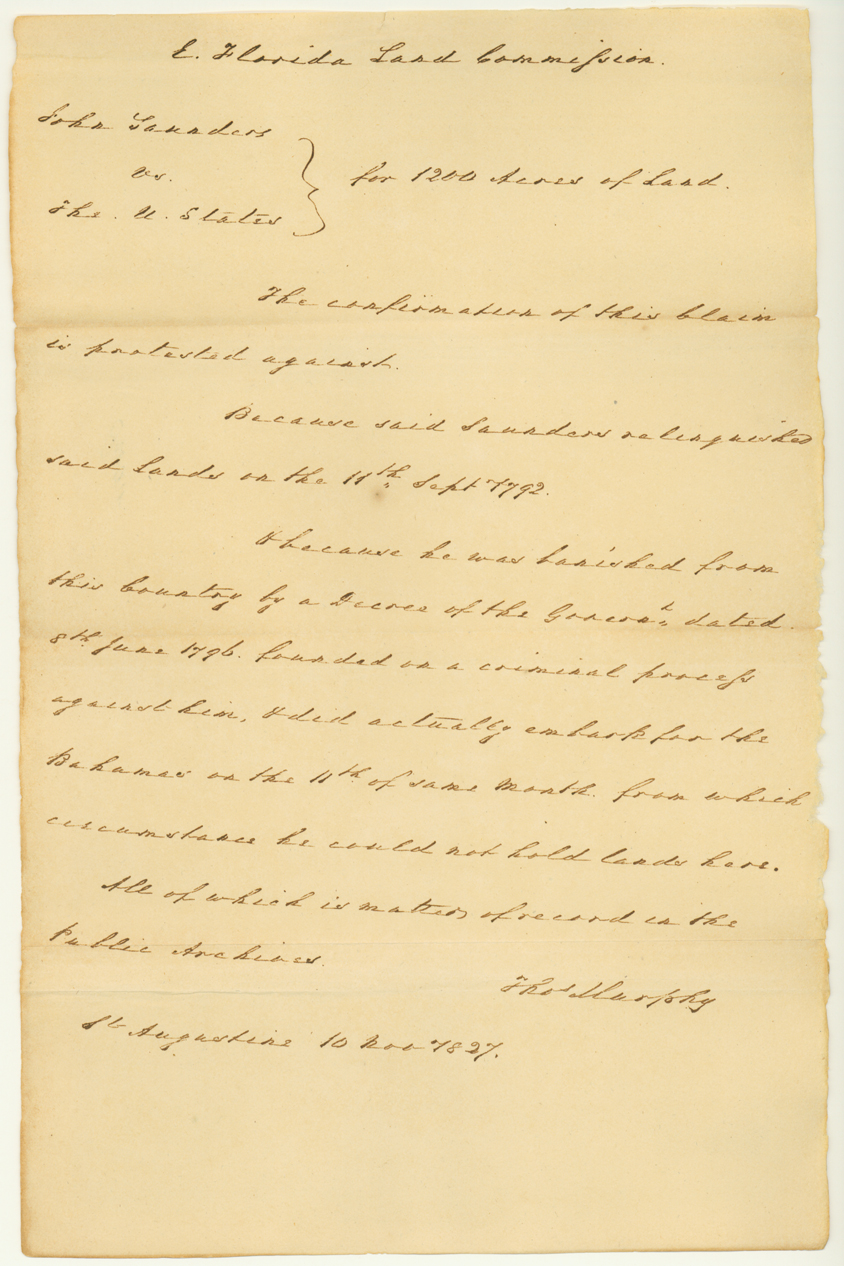 E. Florida Land Commission.
John Saunders
vs.
The. U. States
for 1200 Acres of Land.
The confirmation of this Claim
is protested against.
Because said Saunders relinquished
said Lands on the 11th Sept 1792.
& because he was banished from
this Country by a Decree of the Governt dated
8th June 1796. founded on a criminal process
against him, & did actually embark for the
Bahamas on the 11th of same Month. from which
circumstance he could not hold lands here.
All of which is matter of record in the
Public Archives.
Thos Murphy
St Augustine 10 Nov 1827.